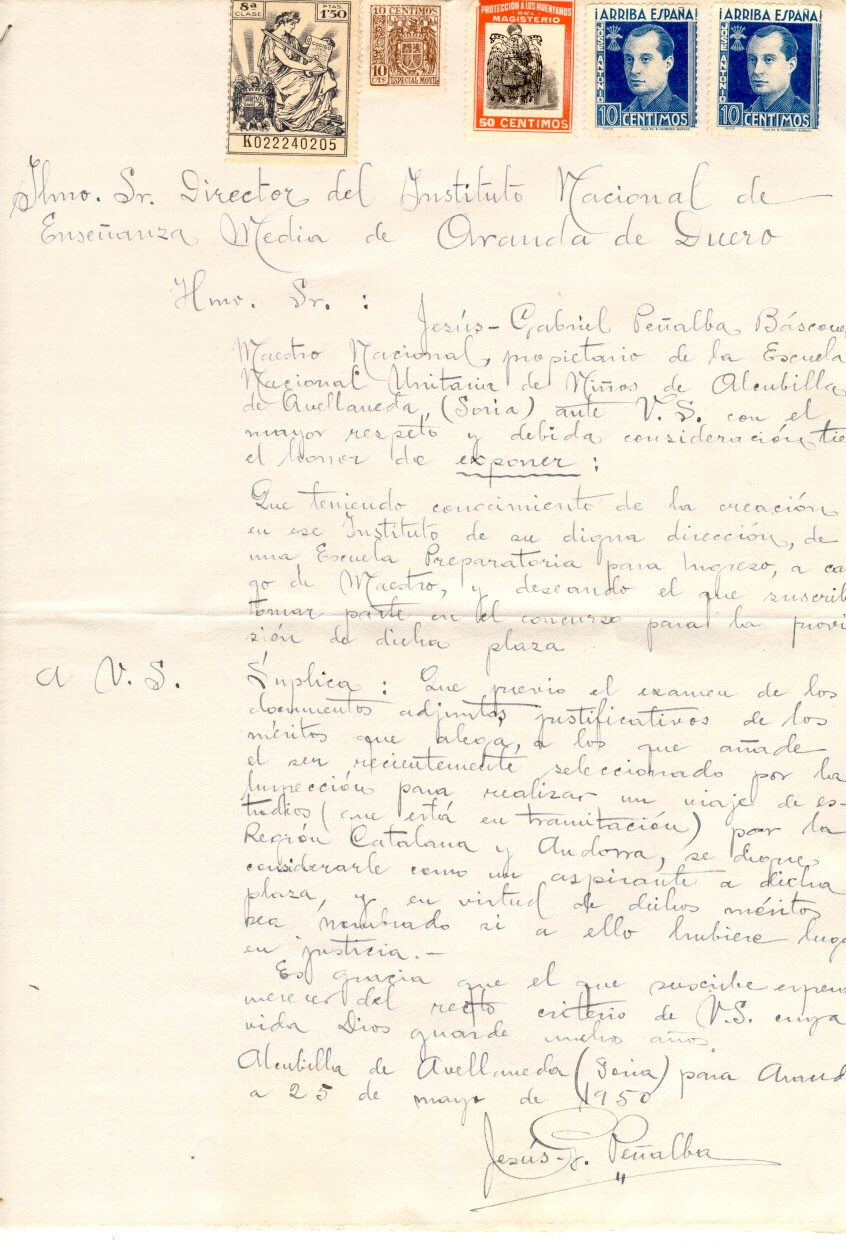 8ª CLASE
PTAS. 1'50
K022240205
10 CENTIMOS
10 CTS
ESPECIAL MOVIL
PROTECCION A LOS HUERFANOS
DEL
MAGISTERIO
50 CENTIMOS
¡ARRIBA ESPAÑA!
JOSE ANTONIO
10 CENTIMOS
¡ARRIBA ESPAÑA!
JOSE ANTONIO
10 CENTIMOS
Ilmo. Sr. Director del Instituto Nacional de
Enseñanza Media de Aranda de Duero
Ilmo. Sr. :
Jesús-Gabriel Peñalba Báscone
Maestro Nacional, propietario de la Escuela
Nacional Unitaria de Niños de Alcubilla
de Avellaneda, (Soria) ante V.S. con el
mayor respeto y debida consideración tie
el honor de exponer :
Que teniendo conocimiento de la creación
en ese Instituto de su digna dirección, de
una Escuela Preparatoria para Ingreso, a ca
go de Maestro, y deseando el que suscrib
tomar parte en el concurso para la provi
sión de dicha plaza
A V. S.
Suplica : Que previo el examen de los
documentos adjuntos, justificativos de los
méritos que alega, a los que añade
el ser recientemente seleccionado por la
Inspección para realizar un viaje de es-
tudios (que está en tramitación) por la
Región Catalana y Andorra, se digne
considerarle como un aspirante a dicha
plaza, y en virtud de dichos méritos
sea nombrado si a ello hubiere luga
en justicia.-
Es gracia que el que suscribe espera
merecer del recto criterio de V.S. cuya
vida Dios guarde muchos años.
Alcubilla de Avellaneda (Soria) para Arand
a 25 de mayo de 1950
Jesús-G. Peñalba